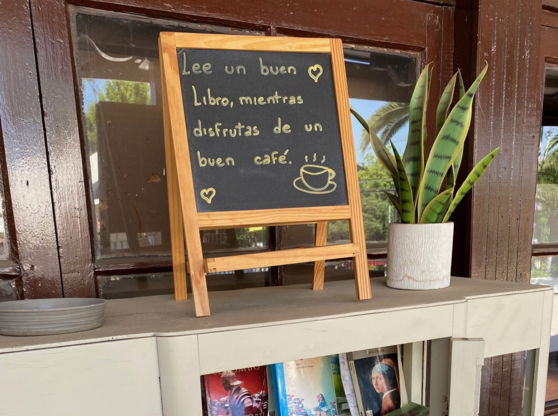 Lee un buen
Libro, mientras
disfrutas de un
buen café.